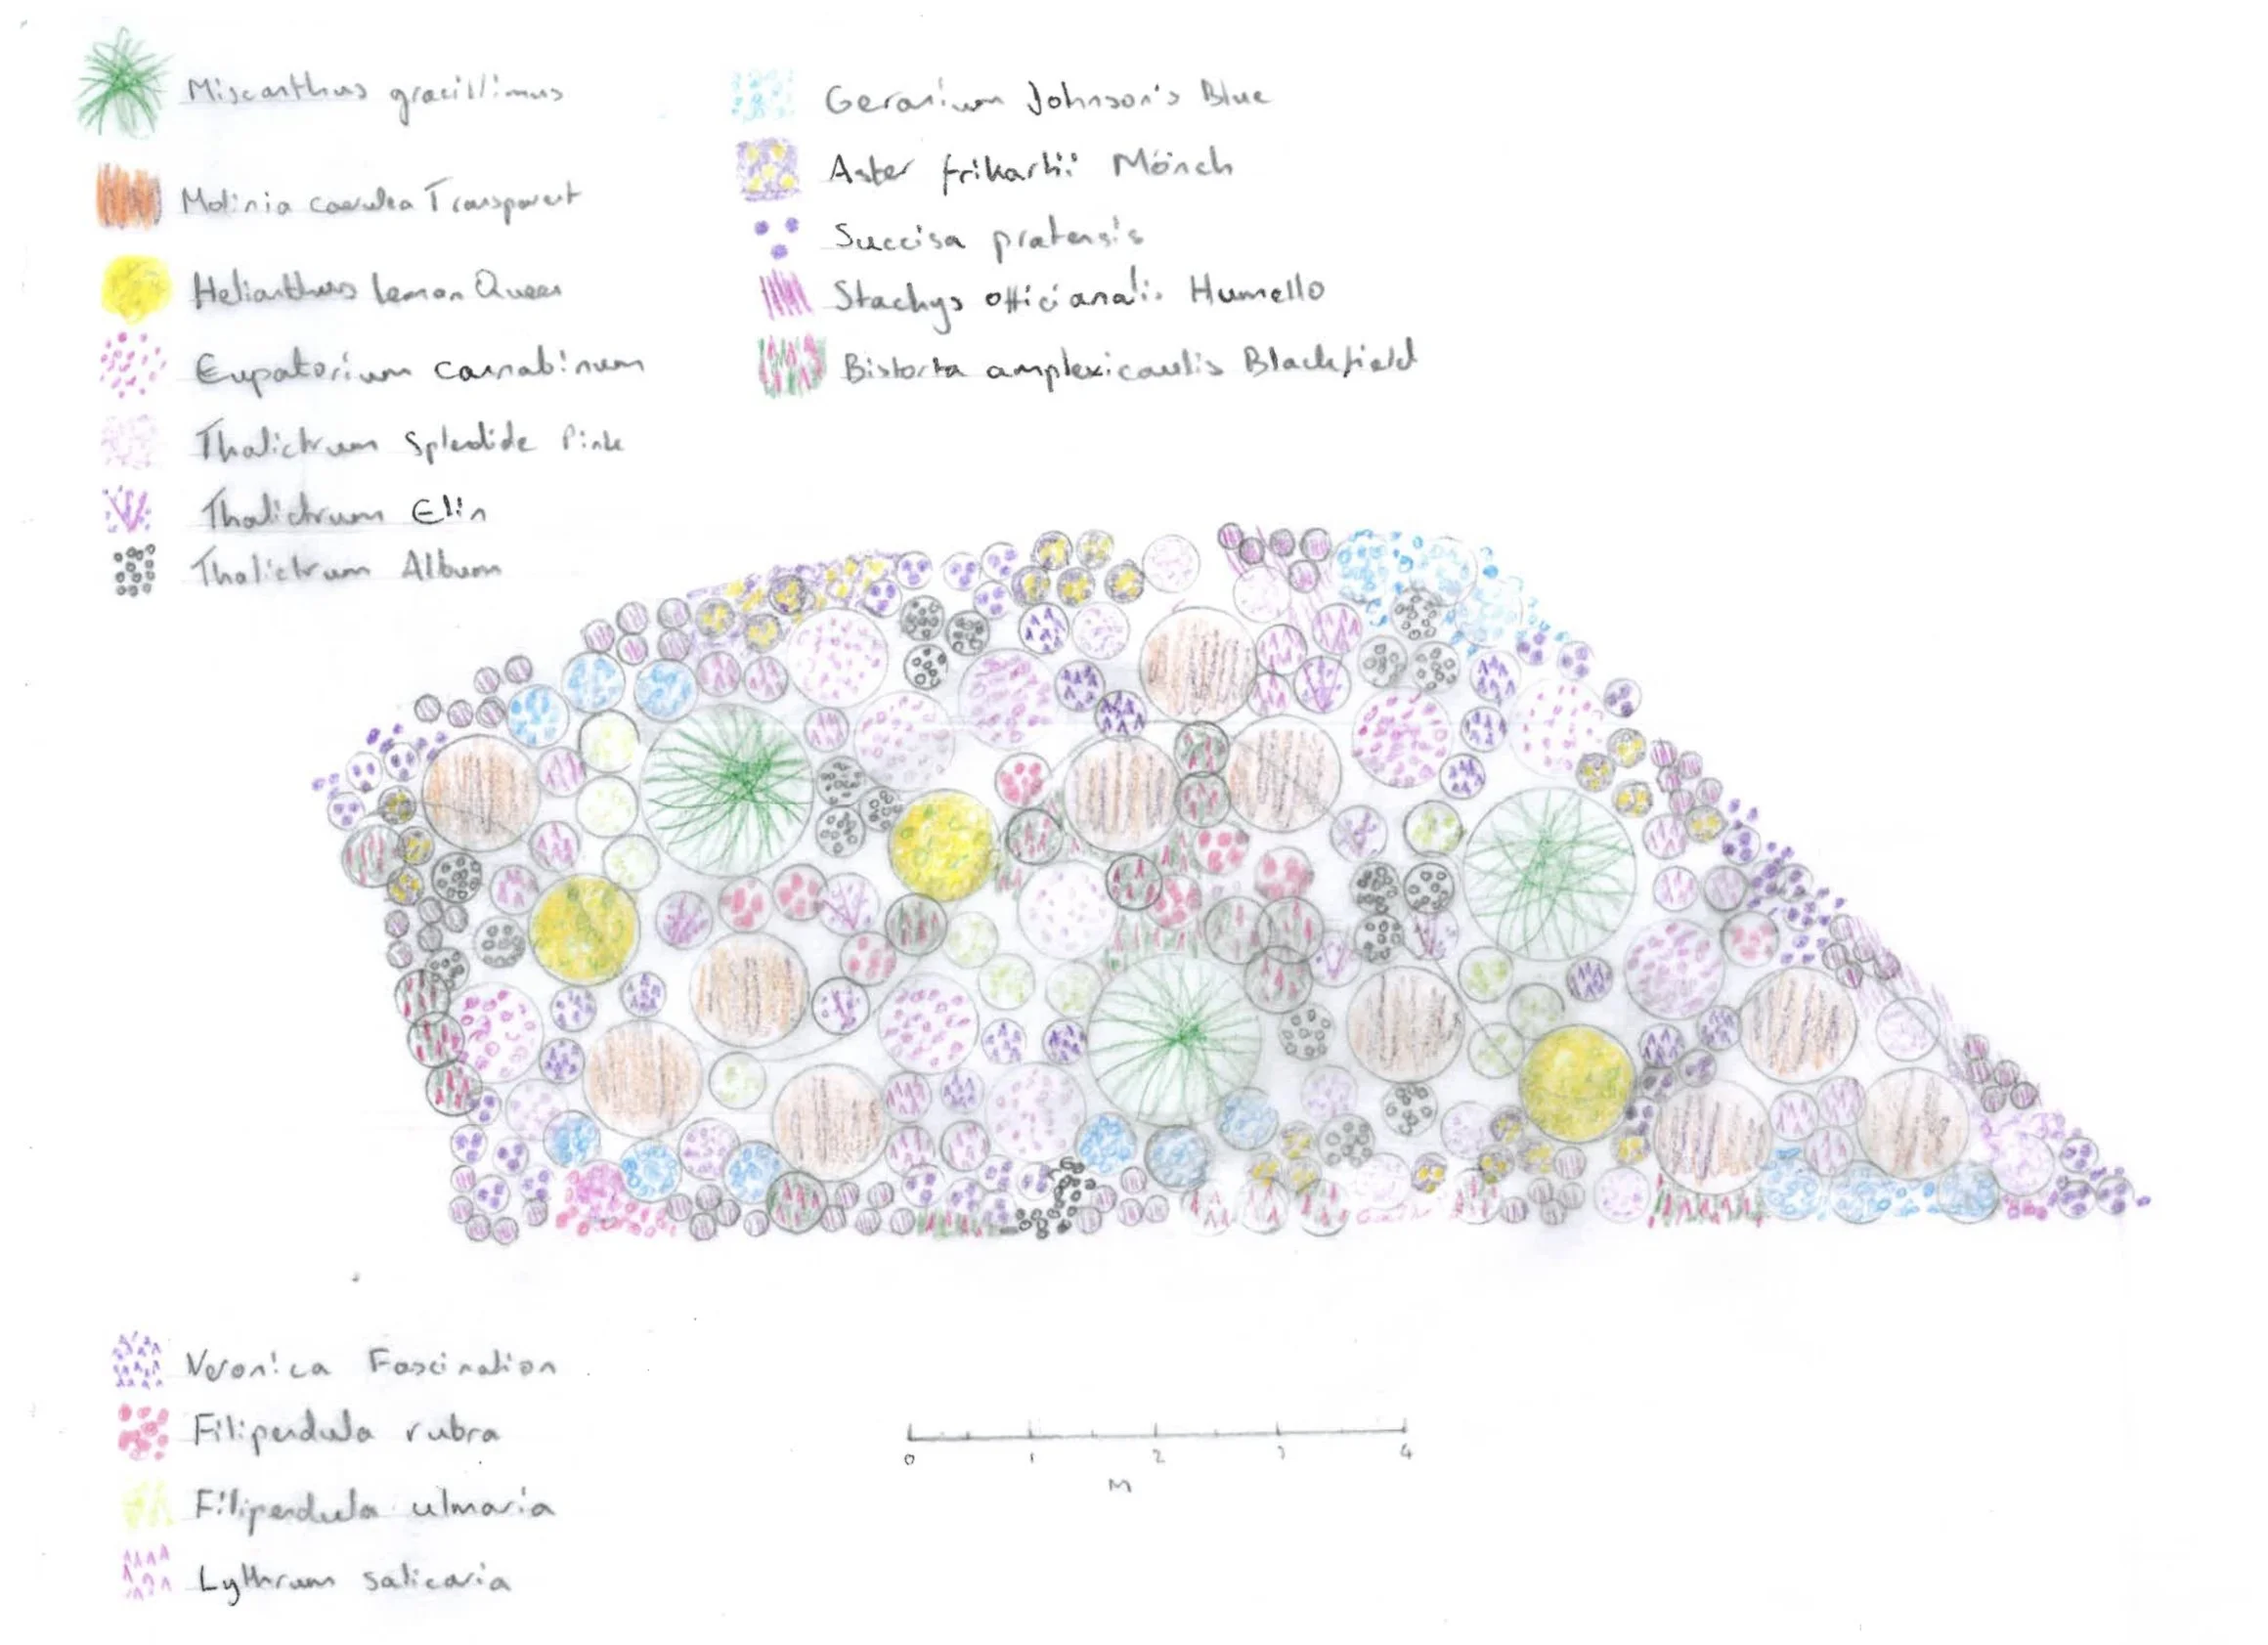 Miscanthus gracillimus
Molinia caerulea Transparent
Helianthus lemon Queen
Eupatorium cannabinum
Thalictrum Splendide Pink
Thalictrum Elin
Thalictrum Album
Geranium Johnson's Blue
Aster frikartii Mönch
Succisa pratensis
Stachys officianalis Humello
Bistorta amplexicaulis Blackfield
Veronica Fascination
Filipendula rubra
Filipendula ulmaria
Lythrum salicaria
0 1 2 3 4
M